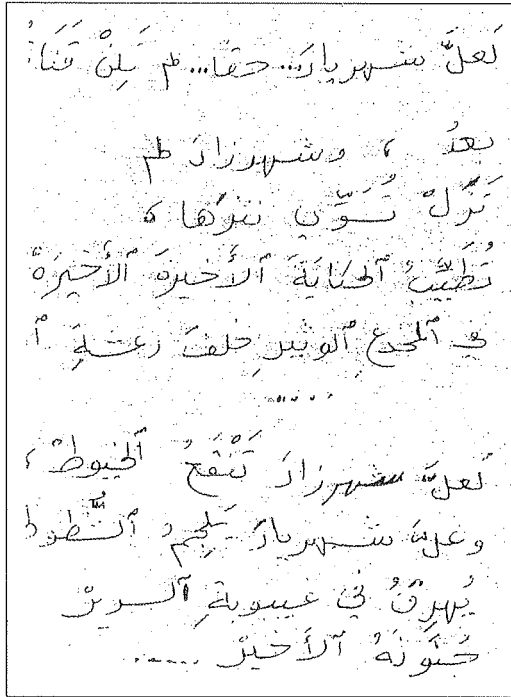 لَعَلَّ شهريارَ... حقا... لم تَلِنْ قَنَا
بعدُ ، وشهرزادَ لم
تَزَلْ تُسَوِّي ،
الحكايةَ الأَخيرةَ الأَخيرَةْ
في المخدعِ الوثيرِ خلفَ رعشةِ ا
......
لعلَّ شهرزادَ الخيوطْ ،
وعلَّ شهريارَ يُلجِمُ
يُهرِقُ في غيبوبةِ السريرْ
جُنونَهُ الأَخيرْ .....